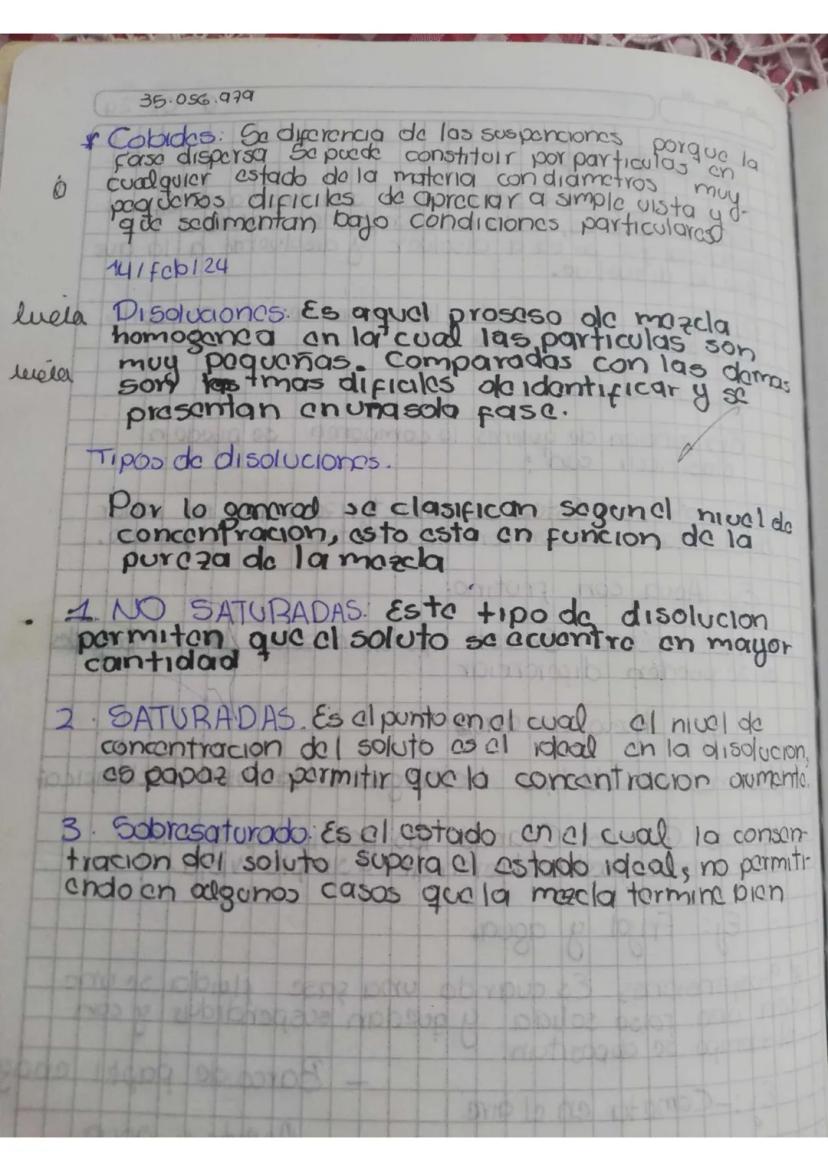 35.056.979
* Cobides: Se diferencia de las suspenciones porque la
fase dispersa Se puede constituir por particulas en
cualquier estado de la materia con diametros muy
ó
pequeños dificiles de apreciar a simple vista y
que sedimentan bajo condiciones particulares
14/feb/24
lucia Disoluciones: Es aquel proseso de mezcla
homogenea en la cual las particulas son
lucia muy pequeñas. Comparadas con las demas
son mas dificiles de identificar y se
presentan en una sola fase.
Tipos de disoluciones.
Por lo general se clasifican segun el nivel de
concentracion, esto esta en funcion de la
pureza de la mezcla
1. NO SATURADAS: Este tipo de disolucion
permiten que el soluto se acuentre en mayor
cantidad
2. SATURADAS. Es el punto en el cual el nivel de
concentracion del soluto es el ideal en la disolucion,
es papaz de permitir que la concentracion aumente.
3. Sobresaturado: Es el estado en el cual la consen-
tracion del soluto supera el estado ideal, no permiti-
endo en algunos casos que la mezcla termine bien